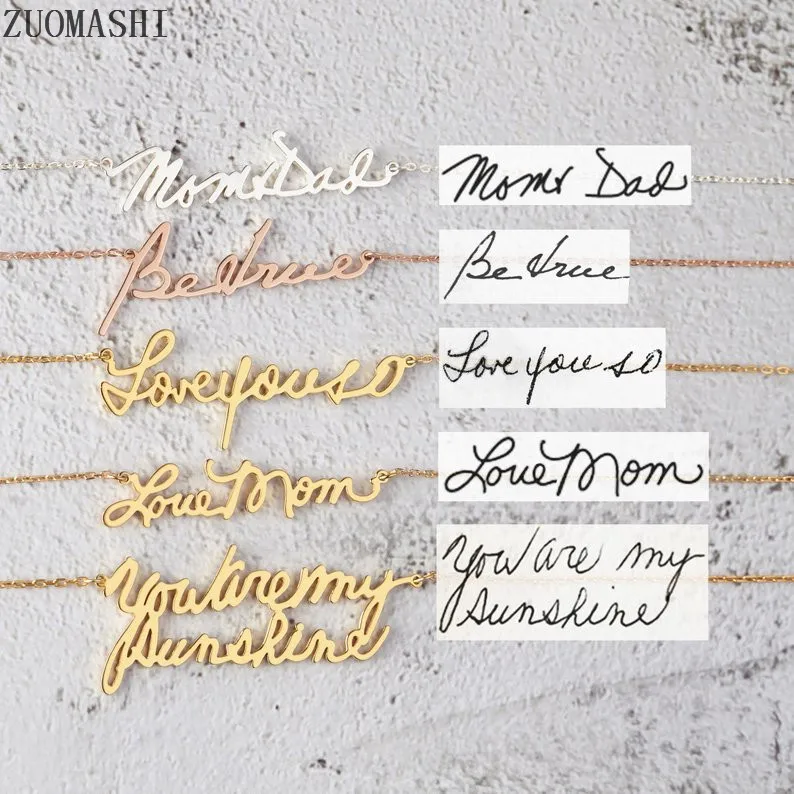 ZUOMASHI
Mom & Dad Mom & Dad
Be true Be true
Love you so Love you so
Love Mom Love Mom
You are my You are my
sunshine sunshine